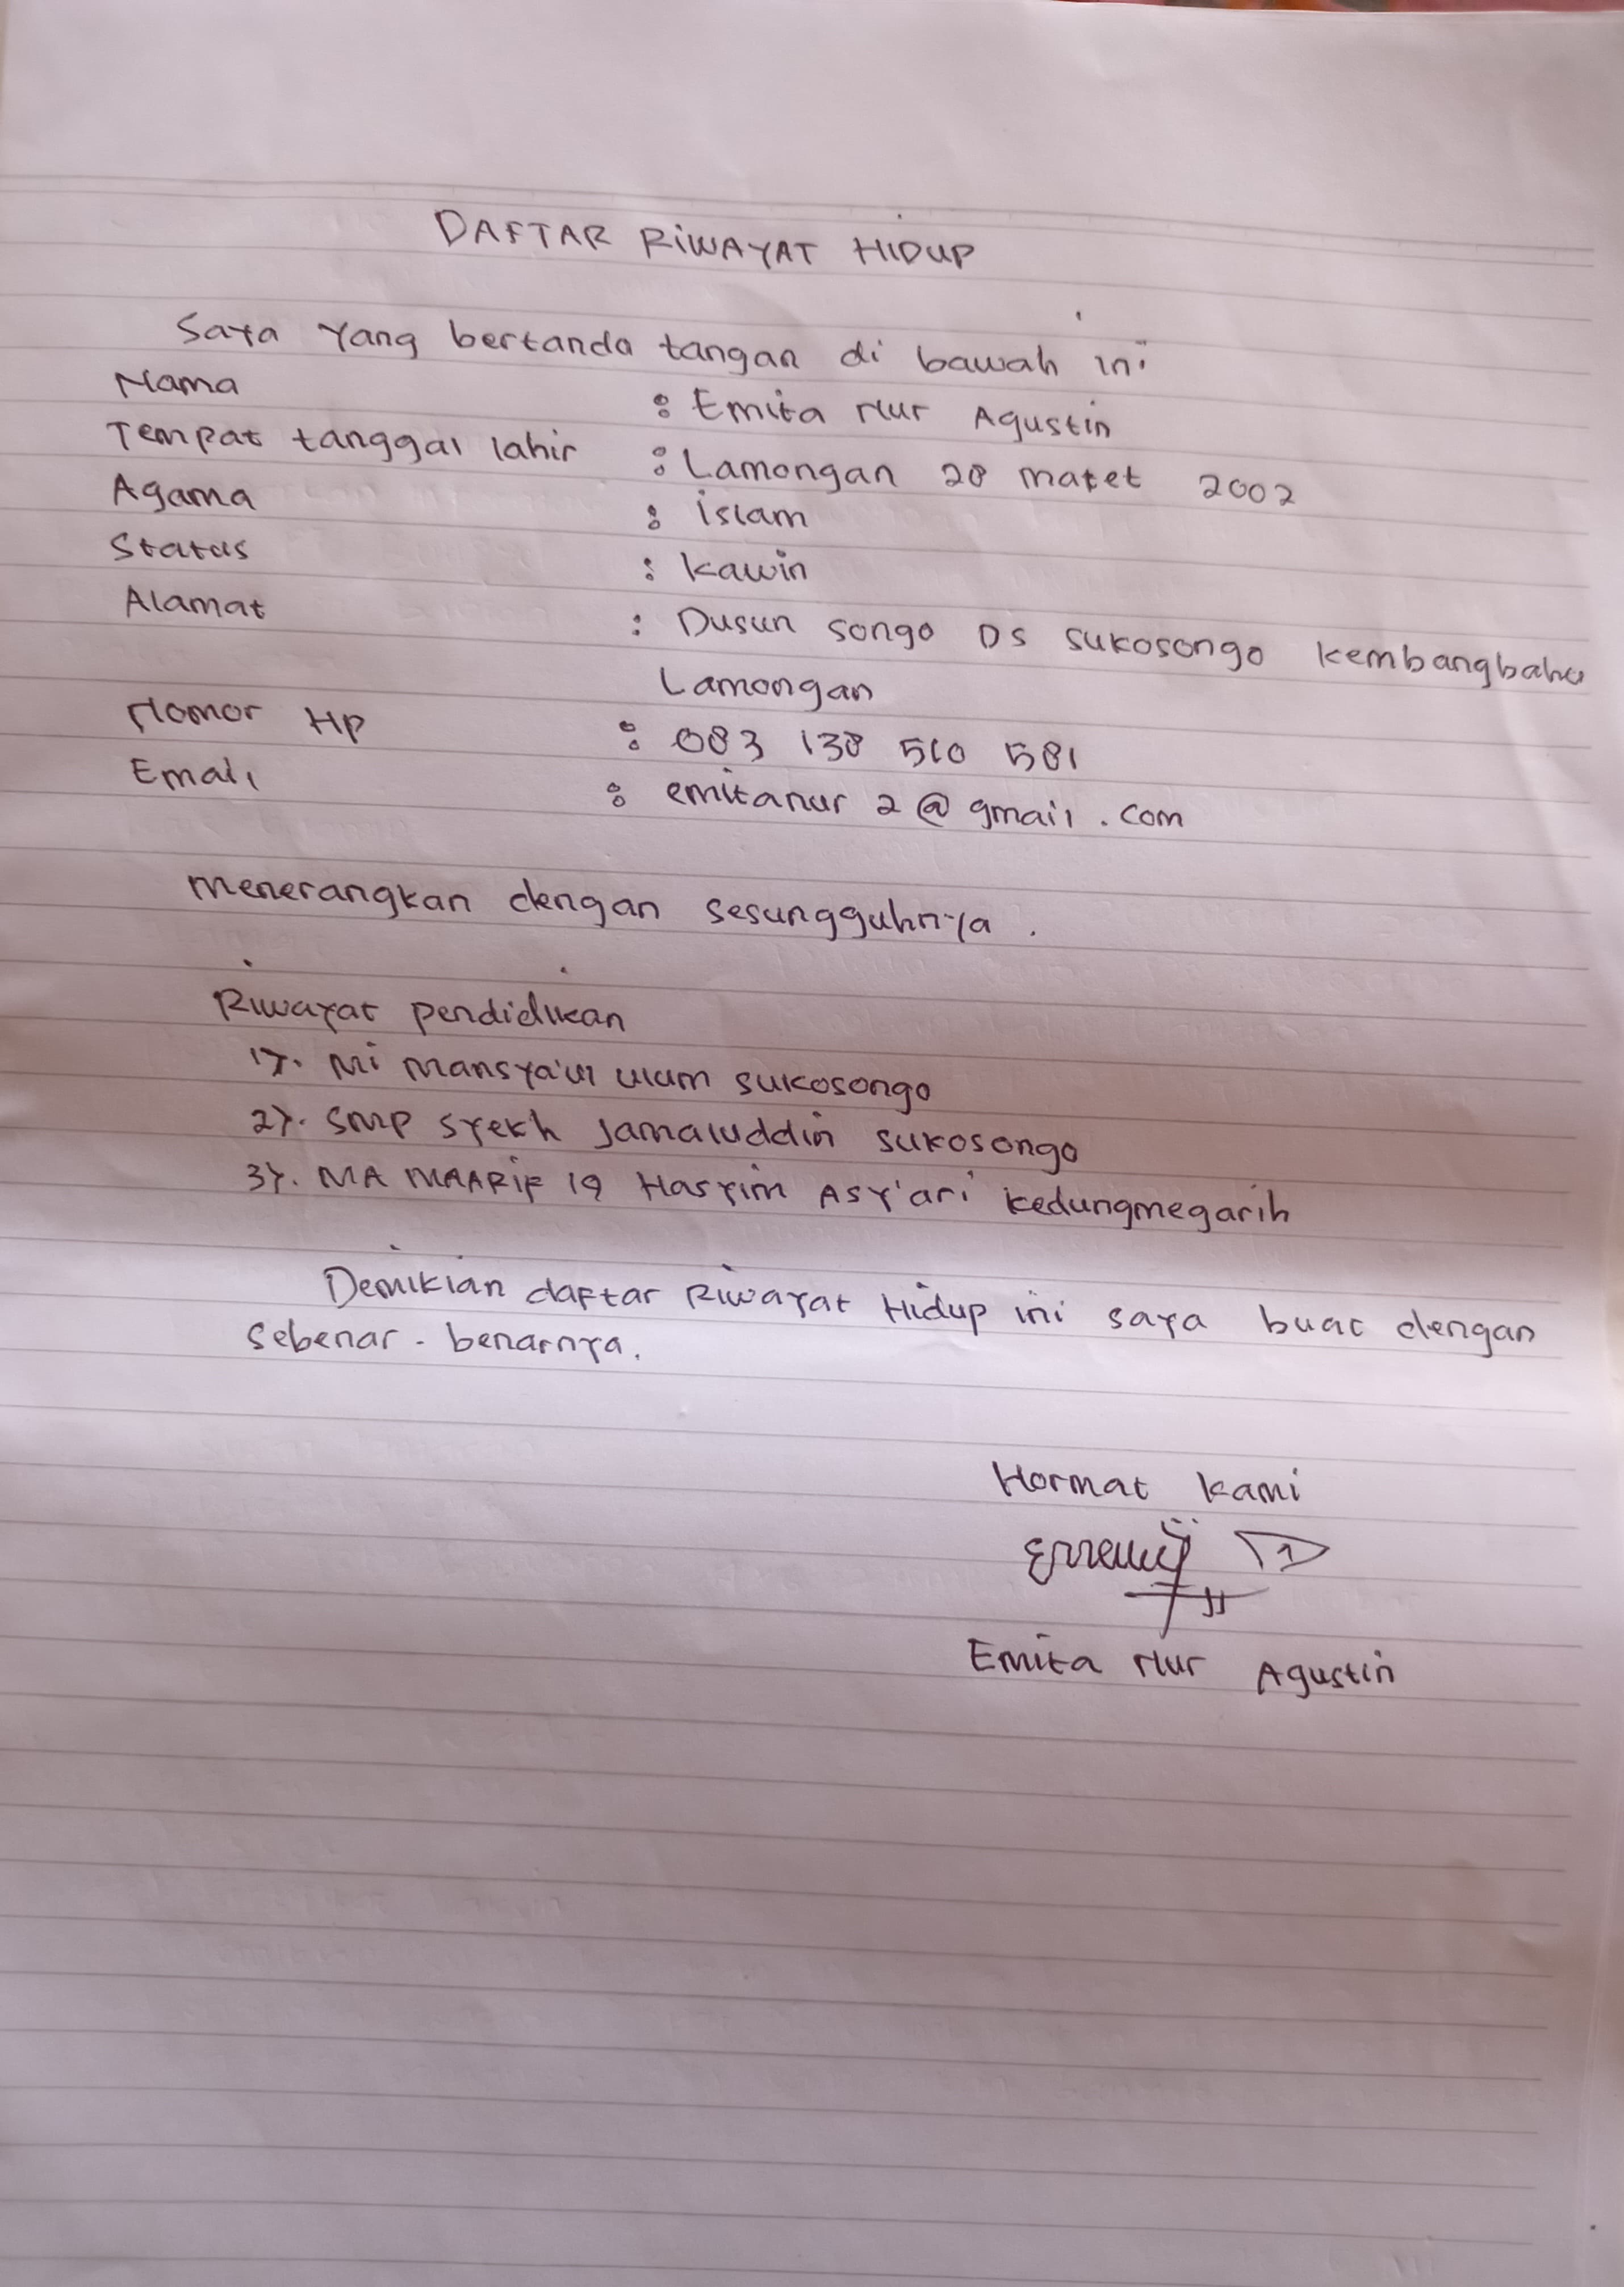 DAFTAR RIWAYAT HIDUP
Saya yang bertanda tangan di bawah ini
Nama : Emita Nur Agustin
Tempat tanggal lahir : Lamongan 28 maret 2002
Agama : islam
Status : kawin
Alamat : Dusun songo DS sukosongo kembangbahu
Lamongan
Nomor HP : 083 138 510 581
Email : emitanur 2 @ gmail . com
menerangkan dengan sesungguhnya .
Riwayat pendidikan
1). Mi Mansya'ul ulum sukosongo
2). SMP syekh Jamaluddin sukosongo
3). MA MAARIF 19 Hasyim Asy'ari kedungmegarih
Demikian daftar Riwayat Hidup ini saya buat dengan
sebenar - benarnya.
Hormat kami
Emita Nur Agustin